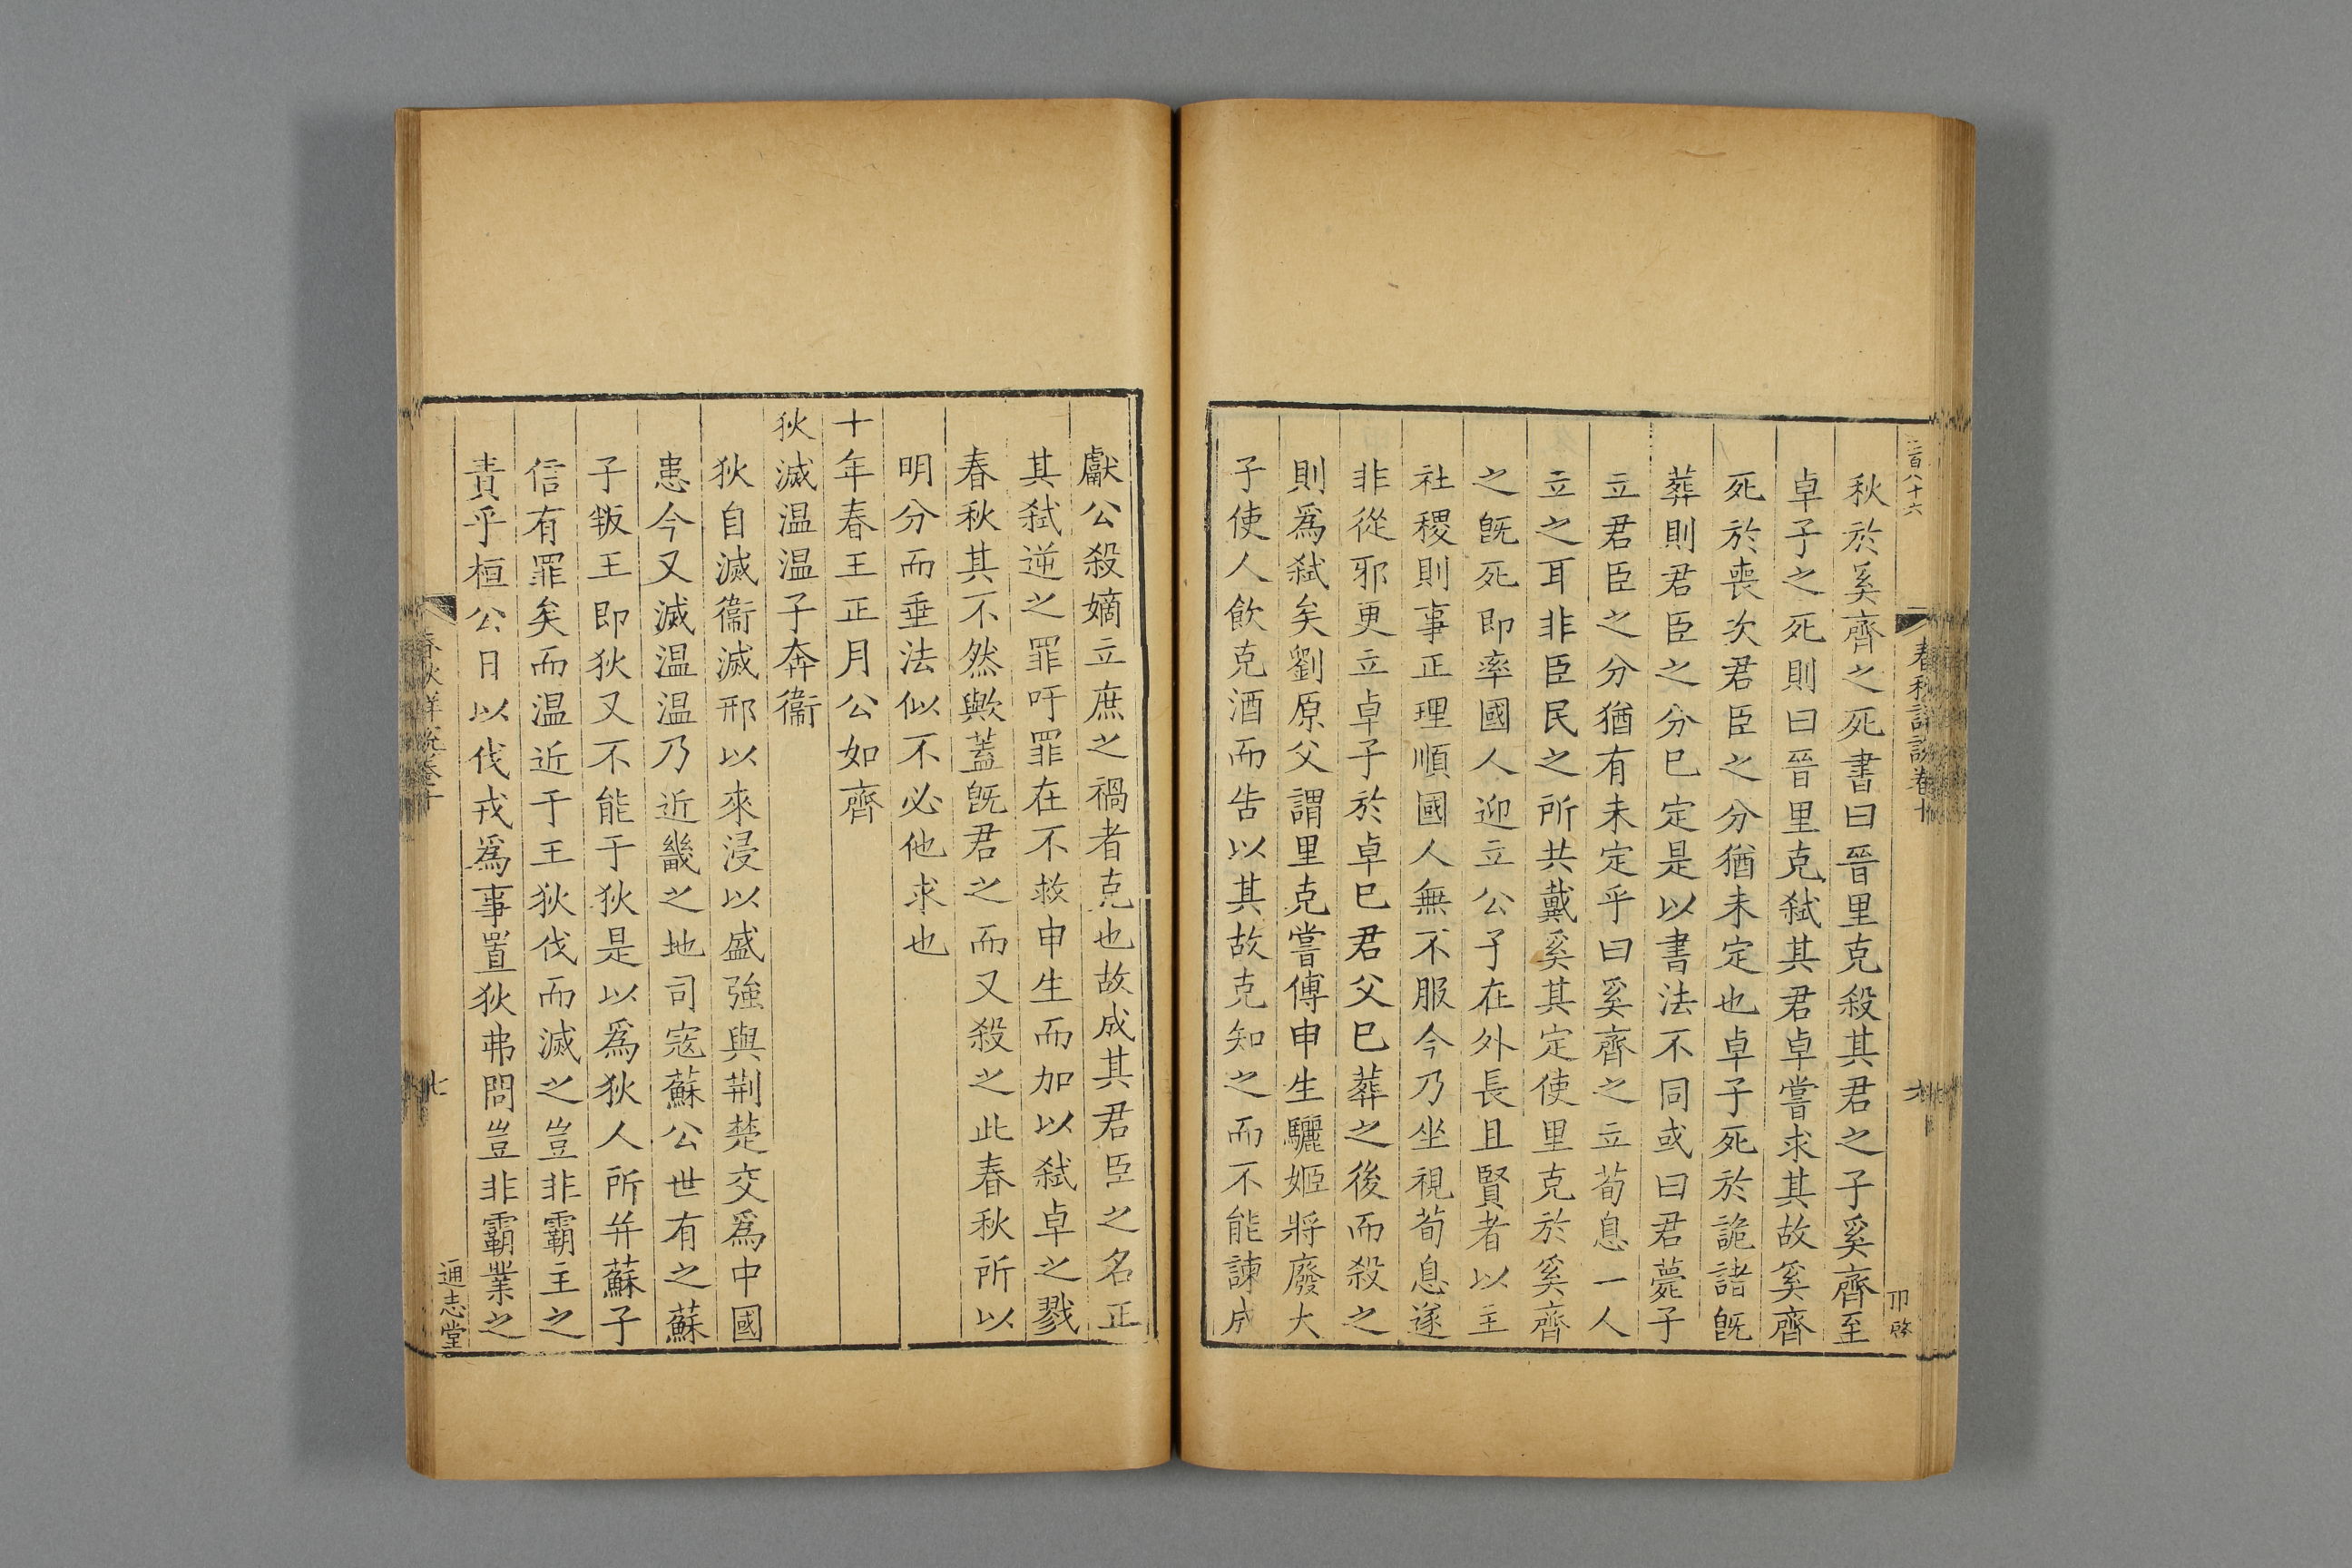 秋於奚齊之死書曰晉里克殺其君之子奚齊至
卓子之死則曰晉里克弑其君卓嘗求其故奚齊
死於喪次君臣之分猶未定也卓子死於詭諸旣
葬則君臣之分已定是以書法不同或曰君薨子
立君臣之分猶有未定乎曰奚齊之立荀息一人
立之耳非臣民之所共戴奚其定使里克於奚齊
之旣死即率國人迎立公子在外長且賢者以主
社稷則事正理順國人無不服今乃坐視荀息遂
非從邪更立卓子於卓巳君父巳葬之後而殺之
則爲弑矣劉原父謂里克嘗傅申生驪姬將廢大
子使人飲克酒而告以其故克知之而不能諫成
獻公殺嫡立庶之禍者克也故成其君臣之名正
其弑逆之罪吁罪在不救申生而加以弑卓之戮
春秋其不然歟蓋旣君之而又殺之此春秋所以
明分而垂法似不必他求也
十年春王正月公如齊
狄滅温温子奔衞
狄自滅衞滅邢以來浸以盛強與荆楚交爲中國
患今又滅温温乃近畿之地司寇蘇公世有之蘇
子叛王即狄又不能于狄是以爲狄人所并蘇子
信有罪矣而温近于王狄伐而滅之豈非霸主之
責乎桓公日以伐戎爲事置狄弗問豈非霸業之
春秋詳說卷十
七
通志堂